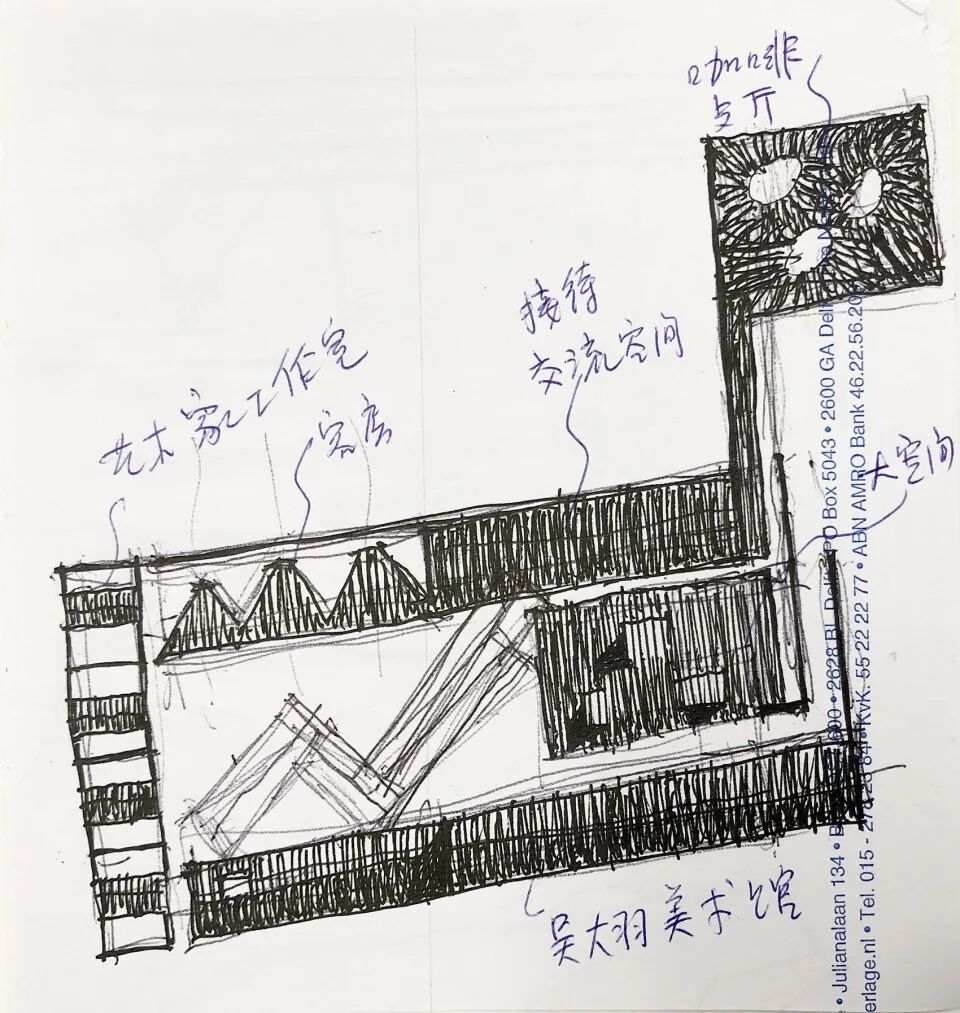 咖啡
厅
接待
交流空间
艺术家工作室
客房
大空间
吴大羽美术馆
• Julianalaan 134 • 2628 BL Delft PO Box 5043 • 2600 GA Delft
erlage.nl • Tel. 015 - KvK. 55 22 22 77 • ABN AMRO Bank 46.22.56.20